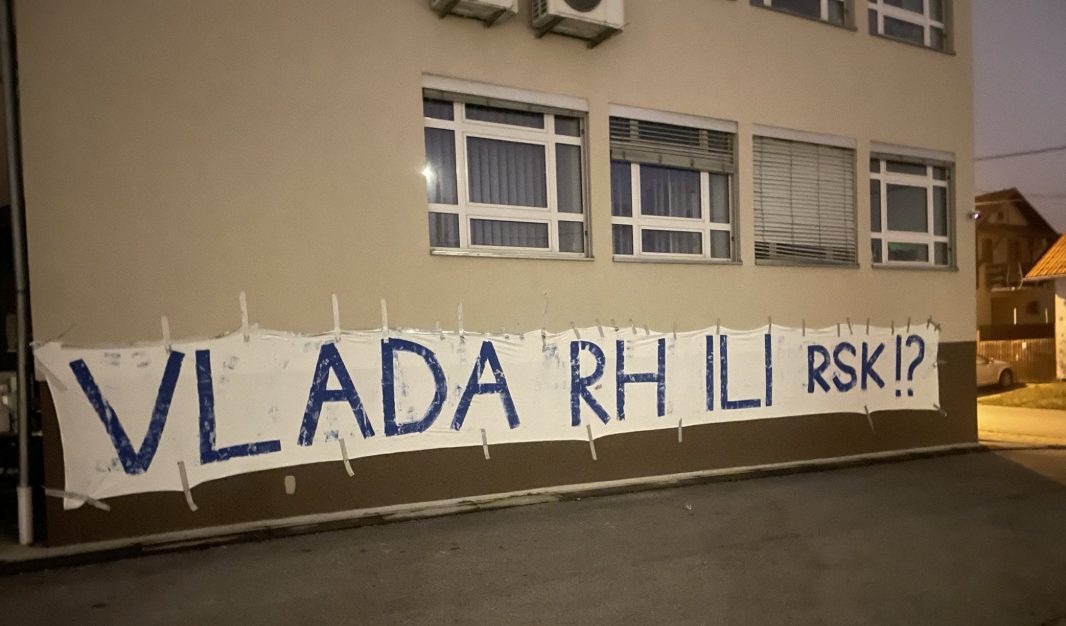 VLADA RH ILI RSK!?